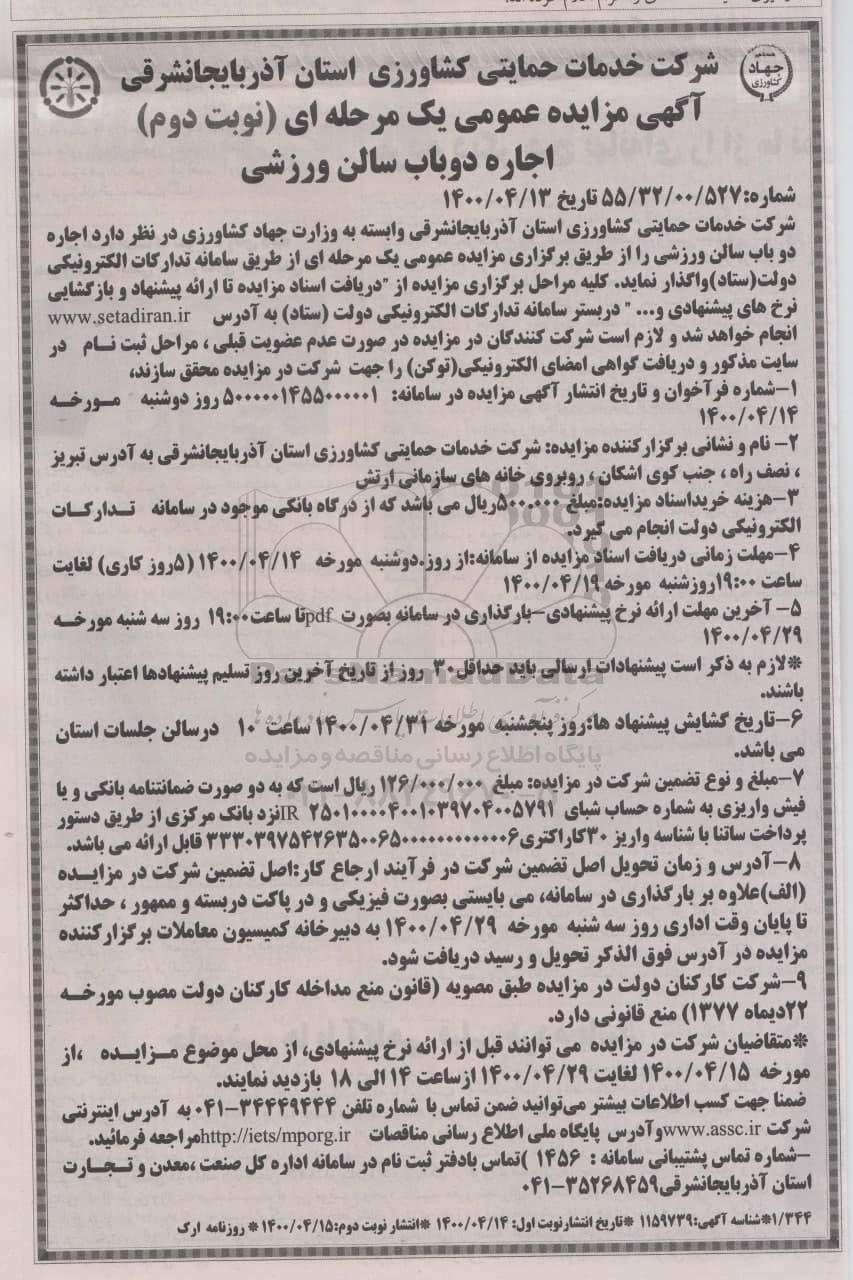 جهاد
کشاورزی
شرکت خدمات حمایتی کشاورزی استان آذربایجانشرقی
آگهی مزایده عمومی یک مرحله ای (نوبت دوم)
اجاره دوباب سالن ورزشی
شماره:۵۵/۳۲/۰۰/۵۲۷ تاریخ ۱۴۰۰/۰۴/۱۳
شرکت خدمات حمایتی کشاورزی استان آذربایجانشرقی وابسته به وزارت جهاد کشاورزی در نظر دارد اجاره
دو باب سالن ورزشی را از طریق برگزاری مزایده عمومی یک مرحله ای از طریق سامانه تدارکات الکترونیکی
دولت(ستاد)واگذار نماید. کلیه مراحل برگزاری مزایده از "دریافت اسناد مزایده تا ارائه پیشنهاد و بازگشایی
نرخ های پیشنهادی و... " دربستر سامانه تدارکات الکترونیکی دولت (ستاد) به آدرس www.setadiran.ir
انجام خواهد شد و لازم است شرکت کنندگان در مزایده در صورت عدم عضویت قبلی ، مراحل ثبت نـام در
سایت مذکور و دریافت گواهی امضای الکترونیکی(توکن) را جهت شرکت در مزایده محقق سازند،
۱-شماره فرآخوان و تاریخ انتشار آگهی مزایده در سامانه: ۵۰۰۰۰۰۱۴۵۵۰۰۰۰۰۱ روز دوشنبه مـورخـه
۱۴۰۰/۰۴/۱۴
۲- نام و نشانی برگزارکننده مزایده: شرکت خدمات حمایتی کشاورزی استان آذربایجانشرقی به آدرس تبریز
، نصف راه ، جنب کوی اشکان ، روبروی خانه های سازمانی ارتش
۳-هزینه خریداسناد مزایده:مبلغ ۵۰۰.۰۰۰ریال می باشد که از درگاه بانکی موجود در سامانه تـدارکـات
الکترونیکی دولت انجام می گیرد.
۴-مهلت زمانی دریافت اسناد مزایده از سامانه:از روز.دوشنبه مورخه ۱۴۰۰/۰۴/۱۴ (۵روز کاری) لغایت
ساعت ۱۹:۰۰روزشنبه مورخه ۱۴۰۰/۰۴/۱۹
۵- آخرین مهلت ارائه نرخ پیشنهادی-بارگذاری در سامانه بصورت pdfتا ساعت۱۹:۰۰ روز سه شنبه مورخـه
۱۴۰۰/۰۴/۲۹
*لازم به ذکر است پیشنهادات ارسالی باید حداقل۳۰ روز از تاریخ آخرین روز تسلیم پیشنهادها اعتبار داشته
باشند.
۶-تاریخ گشایش پیشنهاد ها:روز پنجشنبه مورخه ۱۴۰۰/۰۴/۳۱ ساعت ۱۰ درسالن جلسات استان
می باشد.
پایگاه اطلاع رسانی مناقصه و مزایده
۷-مبلغ و نوع تضمین شرکت در مزایده: مبلغ ۱۲۶/۰۰۰/۰۰۰ ریال است که به دو صورت ضمانتنامه بانکی و یا
فیش واریزی به شماره حساب شبای IR ۲۵۰۱۰۰۰۰۴۰۰۱۰۳۹۷۰۴۰۰۵۷۹۱نزد بانک مرکزی از طریق دستور
پرداخت ساتنا با شناسه واریز ۳۰کاراکتری۳۳۳۰۳۹۷۵۴۲۶۳۵۰۰۶۵۰۰۰۰۰۰۰۰۰۰۰۰۶ قابل ارائه می باشد.
۸-آدرس و زمان تحویل اصل تضمین شرکت در فرآیند ارجاع کار:اصل تضمین شرکت در مزایـده
(الف)علاوه بر بارگذاری در سامانه، می بایستی بصورت فیزیکی و در پاکت دربسته و ممهور ، حداکثر
تا پایان وقت اداری روز سه شنبه مورخه ۱۴۰۰/۰۴/۲۹ به دبیرخانه کمیسیون معاملات برگزارکننده
مزایده در آدرس فوق الذکر تحویل و رسید دریافت شود.
۹-شرکت کارکنان دولت در مزایده طبق مصوبه (قانون منع مداخله کارکنان دولت مصوب مورخـه
۲۲دیماه ۱۳۷۷) منع قانونی دارد.
*متقاضیان شرکت در مزایده می توانند قبل از ارائه نرخ پیشنهادی، از محل موضوع مـزایـده ،از
مورخه ۱۴۰۰/۰۴/۱۵ لغایت ۱۴۰۰/۰۴/۲۹ ازساعت ۱۴ الی ۱۸ بازدید نمایند.
ضمنا جهت کسب اطلاعات بیشتر می‌توانید ضمن تماس با شماره تلفن ۳۴۴۴۹۴۴۴-۰۴۱ به آدرس اینترنتی
شرکت www.assc.irوآدرس پایگاه ملی اطلاع رسانی مناقصات http://iets/mporg.irمراجعه فرمائید.
-شماره تماس پشتیبانی سامانه : ۱۴۵۶ )تماس بادفتر ثبت نام در سامانه اداره کل صنعت ،معدن و تـجـارت
استان آذربایجانشرقی۳۵۲۶۸۴۵۹-۰۴۱
۱/۳۴۴*شناسه آگهی:۱۱۵۹۷۳۹ *تاریخ انتشارنوبت اول: ۱۴۰۰/۰۴/۱۴ *انتشار نوبت دوم:۱۴۰۰/۰۴/۱۵* روزنامه ارک